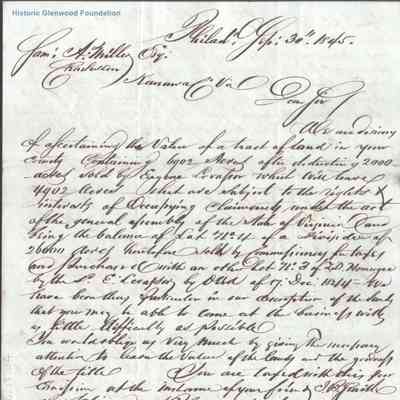 Historic Glenwood Foundation
Philad. Sep. 30th 1845.
Saml. A. Miller Esq.
Charleston
Kanawa C. Va
Dear Sir
We are desirous
of ascertaining the Value of a tract of land in your
County Containing 6902 Acres after deducting 2000
acres sold by Eugene Levassor which will leave
4902 acres which are subject to the rights &
interests of Occupying Claimants under the act
of the general assembly of the State of Virginia and
being the balance of Lot No. 4 of a Division of
acres heretofore sold by Commissioner for taxes
and purchased with an other Lot No. 3 of
by the Sd. E. Levassor by Deed of 17 Dec. 1844 - We
have been thus particular in our description of the lands
that you may be able to come at the business with
as little difficulty as possible
You would oblige us very much by giving the necessary
attention to learn the Value of the lands and the goodness
of the title You are taxed with this
at the instance of your friend Smith